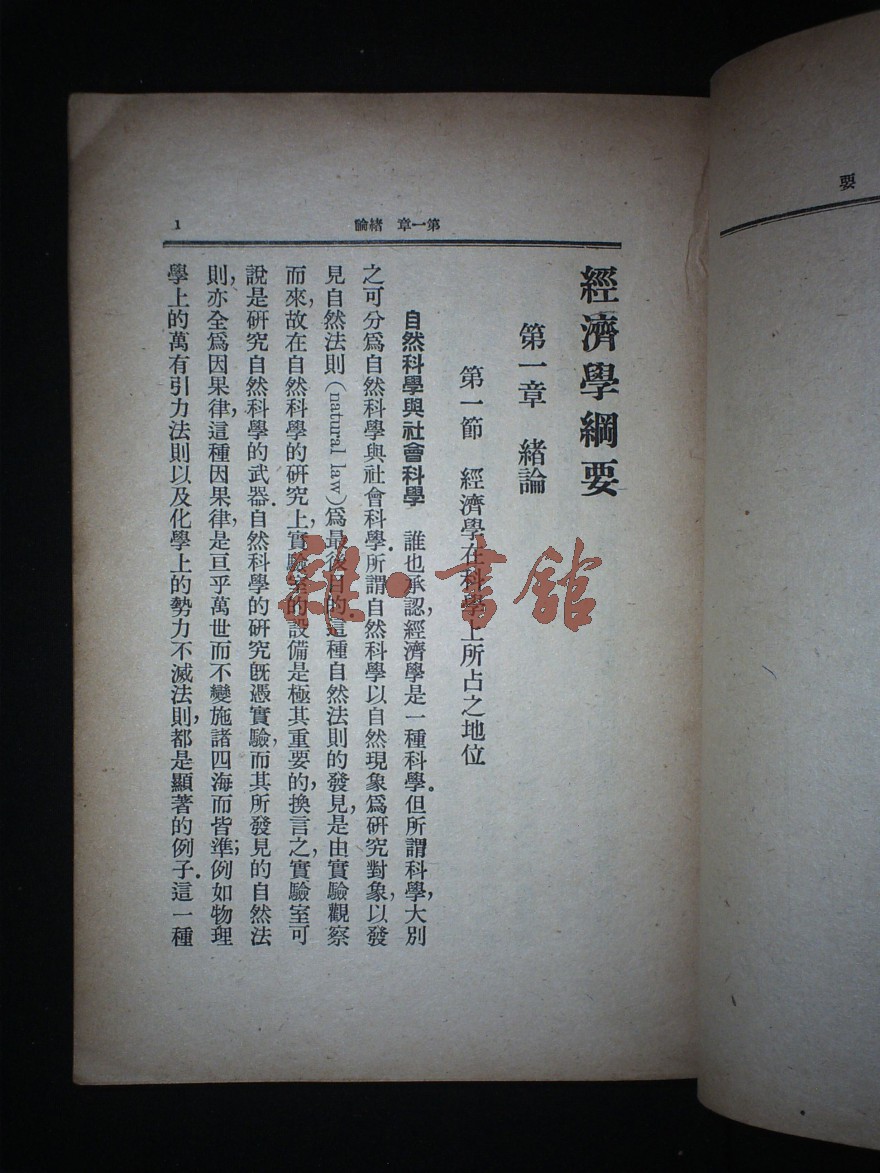 要
第一章 緒論
1
經濟學綱要
第一章 緒論
第一節 經濟學在科學上所占之地位
自然科學與社會科學 誰也承認,經濟學是一種科學.但所謂科學,大別
之可分爲自然科學與社會科學.所謂自然科學以自然現象爲研究對象,以發
見自然法則(natural law)爲最後目的.這種自然法則的發見,是由實驗觀察
而來,故在自然科學的研究上,實驗室的設備是極其重要的,換言之,實驗室可
說是研究自然科學的武器.自然科學的研究既憑實驗,而其所發見的自然法
則,亦全爲因果律,這種因果律,是亘乎萬世而不變施諸四海而皆準;例如物理
學上的萬有引力法則以及化學上的勢力不滅法則,都是顯著的例子.這一種
雜·書館